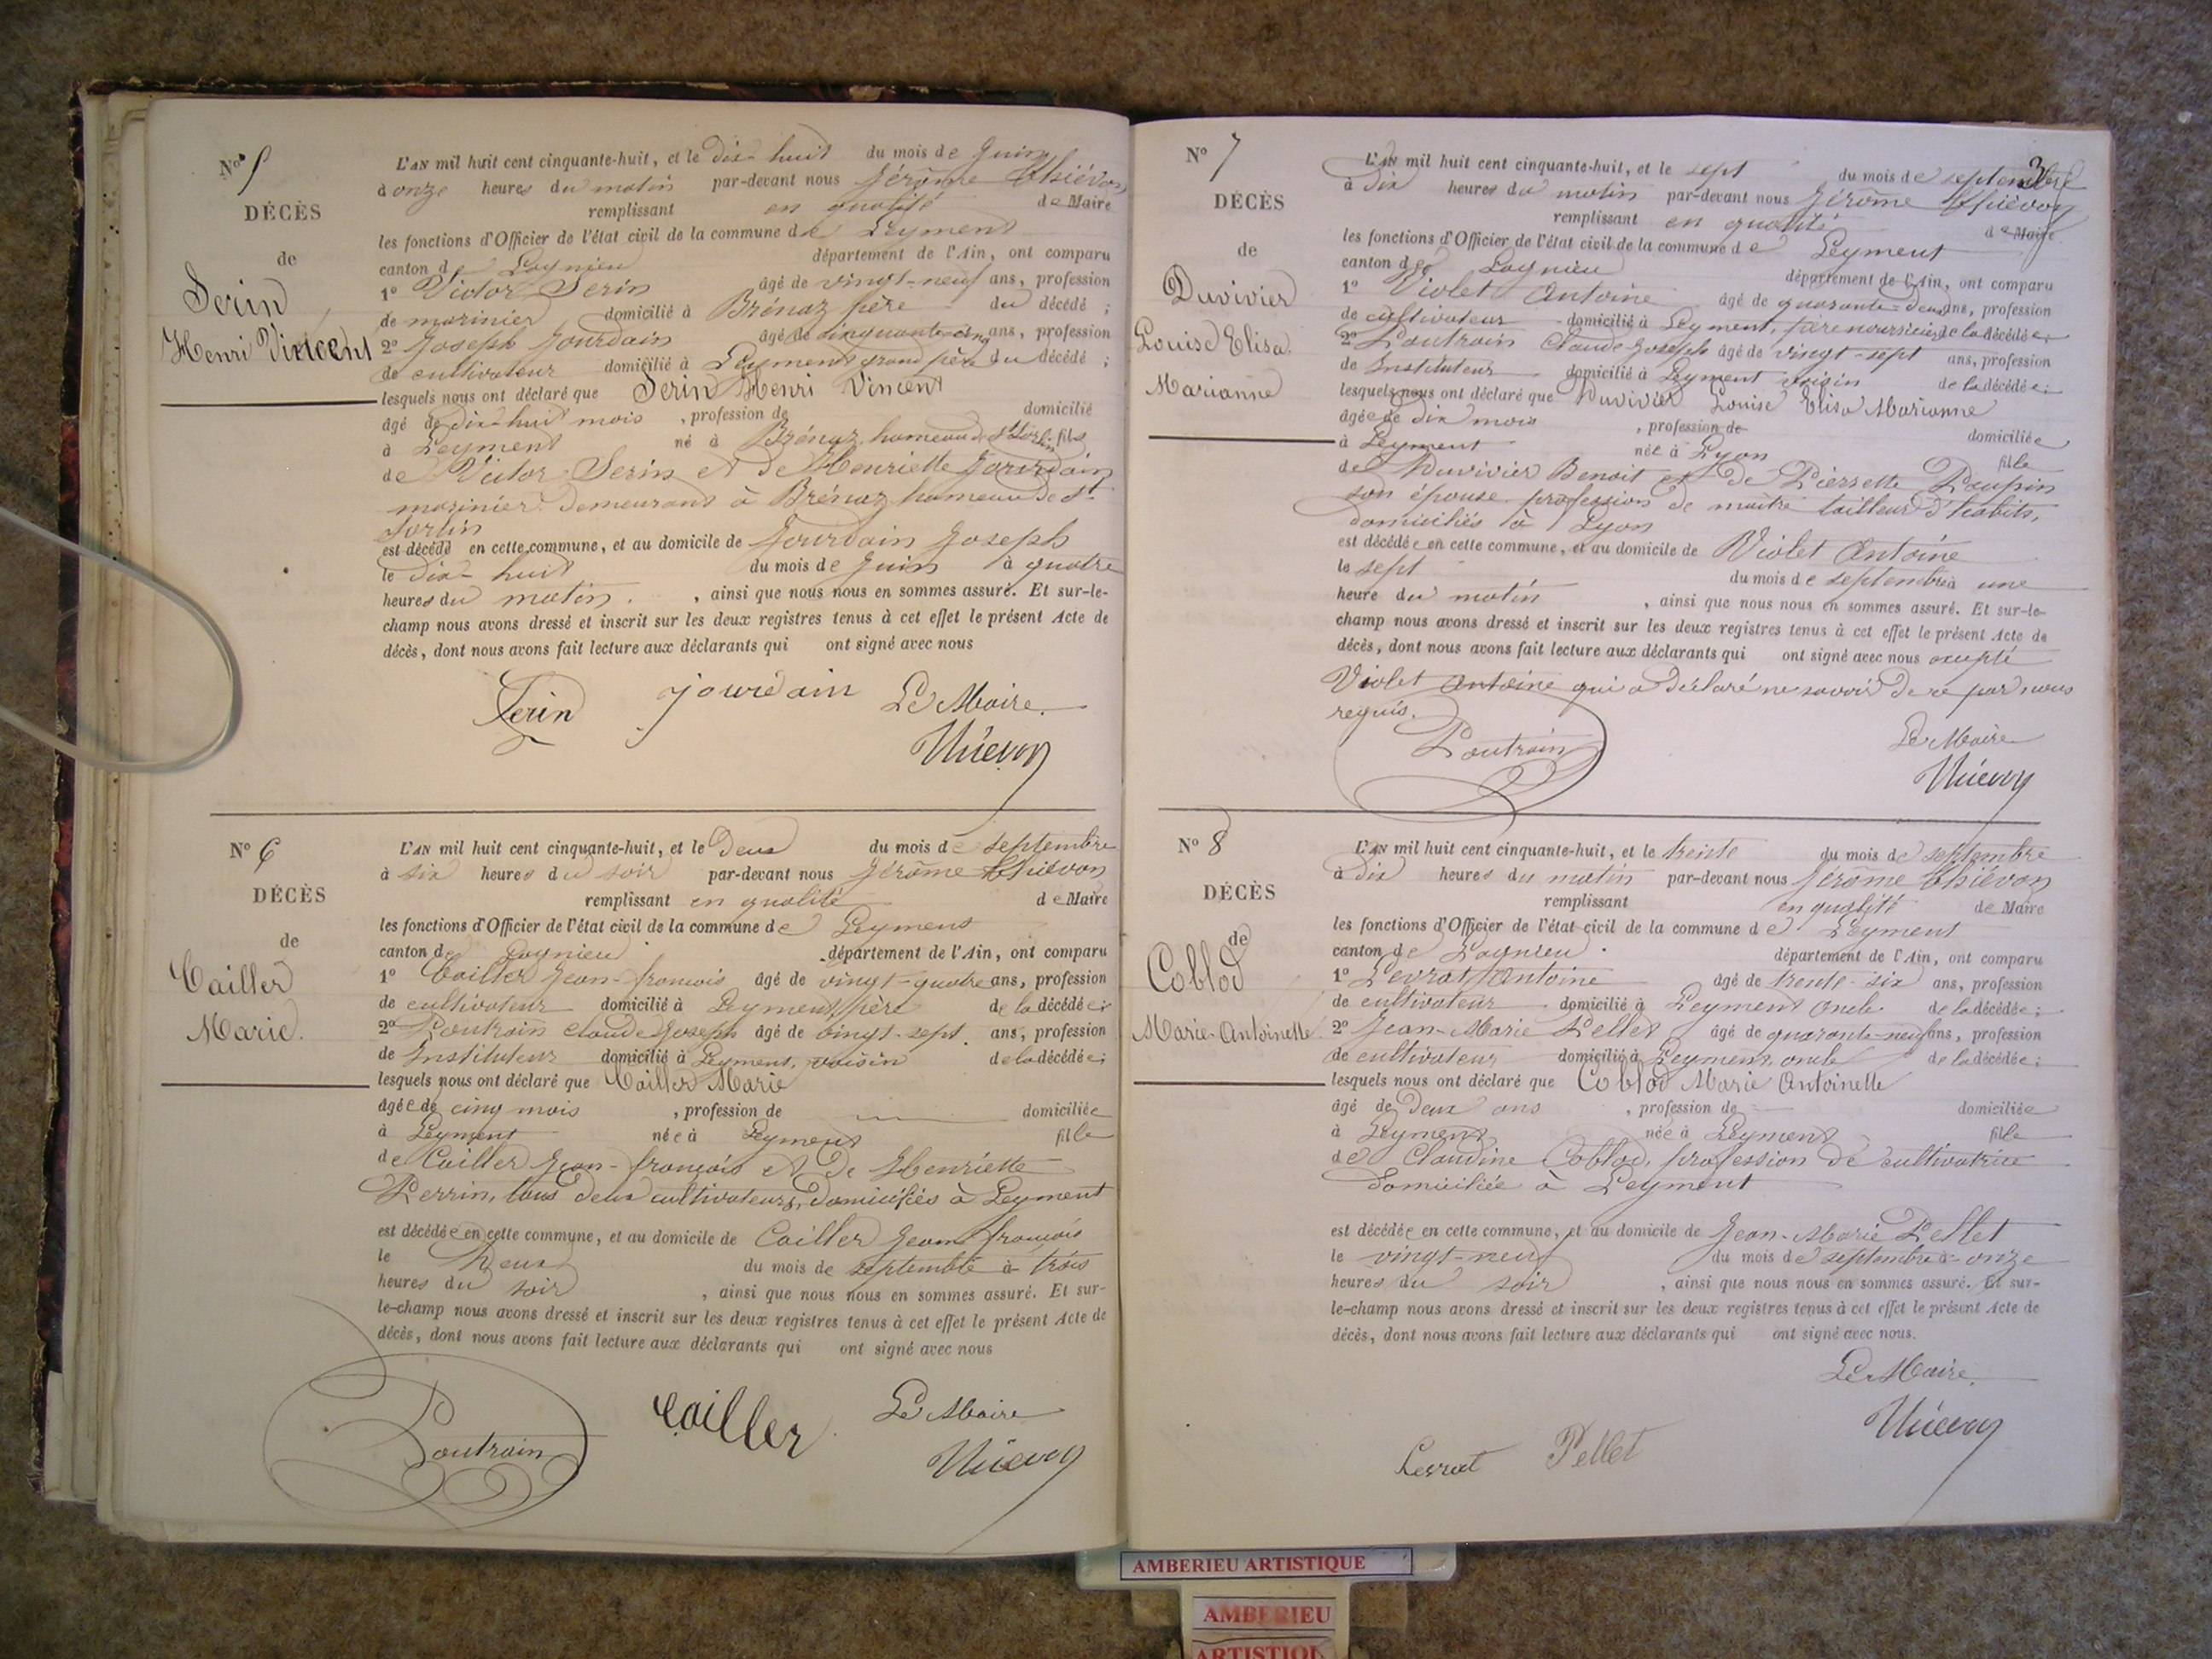 N° 5
DÉCÈS
de
Serin
Henri Vincent
L'AN mil huit cent cinquante-huit, et le dix-huit du mois de Juin
à onze heures du matin par-devant nous Jérôme Thiévon
remplissant en qualité de Maire
les fonctions d'Officier de l'état civil de la commune de Leyment
canton de Lagnieu département de l'Ain, ont comparu
1° Victor Serin âgé de vingt-neuf ans, profession
de marinier domicilié à Brénaz père du décédé ;
2° Joseph Jourdain âgé de cinquante-cinq ans, profession
de cultivateur domicilié à Leyment grand père du décédé ;
lesquels nous ont déclaré que Serin Henri Vincent
âgé de dix-huit mois , profession de domicilié
à Leyment né à Brénaz hameau de St Sorlin fils
de Victor Serin et de Henriette Jourdain
marinier demeurant à Brénaz hameau de St
Sorlin
est décédé en cette commune, et au domicile de Jourdain Joseph
le dix-huit du mois de Juin à quatre
heures du matin. , ainsi que nous nous en sommes assuré. Et sur-le-
champ nous avons dressé et inscrit sur les deux registres tenus à cet effet le présent Acte de
décès, dont nous avons fait lecture aux déclarants qui ont signé avec nous
Serin jourdain Le Maire
Thiévon
N° 6
DÉCÈS
de
Cailler
Marie.
L'AN mil huit cent cinquante-huit, et le deux du mois de septembre
à six heures du soir par-devant nous Jérôme Thiévon
remplissant en qualité de Maire
les fonctions d'Officier de l'état civil de la commune de Leyment
canton de Lagnieu département de l'Ain, ont comparu
1° Cailler Jean-françois âgé de vingt-quatre ans, profession
de cultivateur domicilié à Leyment père de la décédée ;
2° Poutrain Claude Joseph âgé de vingt-sept ans, profession
de Instituteur domicilié à Leyment, voisin de la décédée ;
lesquels nous ont déclaré que Cailler Marie
âgée de cinq mois , profession de domiciliée
à Leyment née à Leyment fille
de Cailler Jean-françois et de Henriette
Perrin, tous deux cultivateurs, domiciliés à Leyment
est décédée en cette commune, et au domicile de Cailler Jean françois
le Deux du mois de septembre à trois
heures du soir , ainsi que nous nous en sommes assuré. Et sur-
le-champ nous avons dressé et inscrit sur les deux registres tenus à cet effet le présent Acte de
décès, dont nous avons fait lecture aux déclarants qui ont signé avec nous
Poutrain Cailler Le Maire
Thiévon
3
N° 7
DÉCÈS
de
Duvivier
Louise Elisa
Marianne
L'AN mil huit cent cinquante-huit, et le sept du mois de septembre
à dix heures du matin par-devant nous Jérôme Thiévon
remplissant en qualité de Maire
les fonctions d'Officier de l'état civil de la commune de Leyment
canton de Lagnieu département de l'Ain, ont comparu
1° Violet Antoine âgé de quarante-deux ans, profession
de cultivateur domicilié à Leyment, père nourricier de la décédée
2° Poutrain Claude Joseph âgé de vingt-sept ans, profession
de Instituteur domicilié à Leyment voisin de la décédée ;
lesquels nous ont déclaré que Duvivier Louise Elisa Marianne
âgée de dix mois , profession de domiciliée
à Leyment née à Lyon fille
de Duvivier Benoit et de Pierrette Poupin
son épouse, profession de maître tailleur d'habits,
domiciliés à Lyon
est décédée en cette commune, et au domicile de Violet Antoine
le sept du mois de septembre à une
heure du matin , ainsi que nous nous en sommes assuré. Et sur-le-
champ nous avons dressé et inscrit sur les deux registres tenus à cet effet le présent Acte de
décès, dont nous avons fait lecture aux déclarants qui ont signé avec nous excepté
Violet Antoine qui a déclaré ne savoir de ce par nous
requis.
Poutrain Le Maire
Thiévon
N° 8
DÉCÈS
de
Coblod
Marie-Antoinette
L'AN mil huit cent cinquante-huit, et le trente du mois de septembre
à dix heures du matin par-devant nous Jérôme Thiévon
remplissant en qualité de Maire
les fonctions d'Officier de l'état civil de la commune de Leyment
canton de Lagnieu département de l'Ain, ont comparu
1° Levrat Antoine âgé de trente-six ans, profession
de cultivateur domicilié à Leyment oncle de la décédée ;
2° Jean-Marie Pellet âgé de quarante-neuf ans, profession
de cultivateur domicilié à Leyment, oncle de la décédée ;
lesquels nous ont déclaré que Coblod Marie Antoinette
âgé de Deux ans , profession de domiciliée
à Leyment née à Leyment fille
de Claudine Coblod, profession de cultivatrice
domiciliée à Leyment
est décédée en cette commune, et au domicile de Jean-Marie Pellet
le vingt-neuf du mois de septembre à onze
heures du soir , ainsi que nous nous en sommes assuré. Et sur-
le-champ nous avons dressé et inscrit sur les deux registres tenus à cet effet le présent Acte de
décès, dont nous avons fait lecture aux déclarants qui ont signé avec nous.
Le Maire.
Thiévon
Levrat Pellet
AMBERIEU ARTISTIQUE
AMBERIEU
ARTISTIQUE